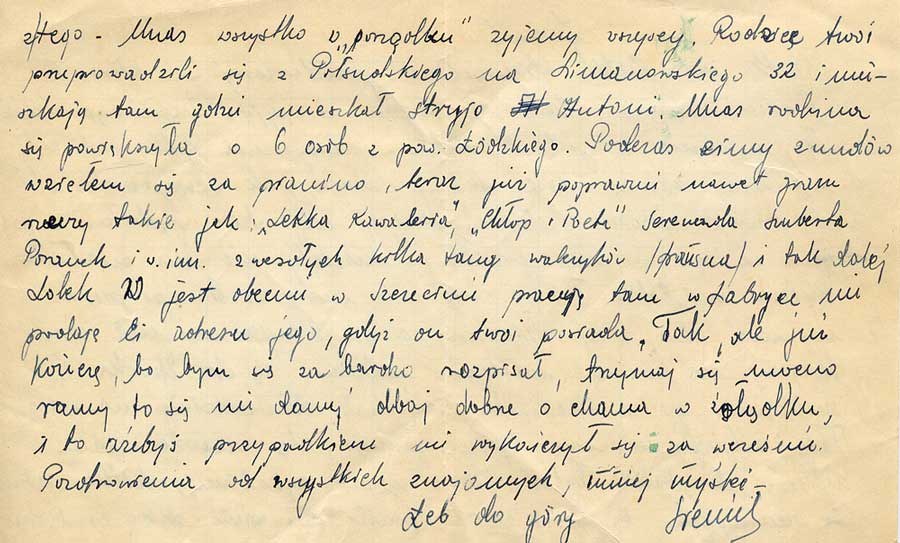 złtego - Unas wszystko v „porządku" żyjemy wszyscy. Rodzice twoi
przeprowadzili się z Piłsudskiego na Limanowskiego 32 i mie-
szkają tam gdzie mieszkał stryjo Antoni. Unas rodzina
się powiększyła o 6 osób z pow. Łódzkiego. Podczas zimy z nudów
wziełem się za pranino, teraz już poprawnie nawet gram
rzeczy takie jak: „Lekka Kawaleria", „Chłop i Poeta" Serenada Szuberta
Poranek i v. inn. z wesołych kilka tang walczyków / i tak dalej
Lolek jest obecnie w Szczecinie pracuję tam w fabryce nie
podaję Ci adresu jego, gdyż on twoi posiada. Tak, ale już
Kończę, bo bym się za bardzo rozpisał, trzymaj się mocno
ramy to się nie damy dbaj dobrze o chama w żołądku,
i to ażebyś przypadkiem nie wykończył się za wcześnie.
Pozdrowienia od wszystkich znajomych, mniej myśleć -
Łeb do góry